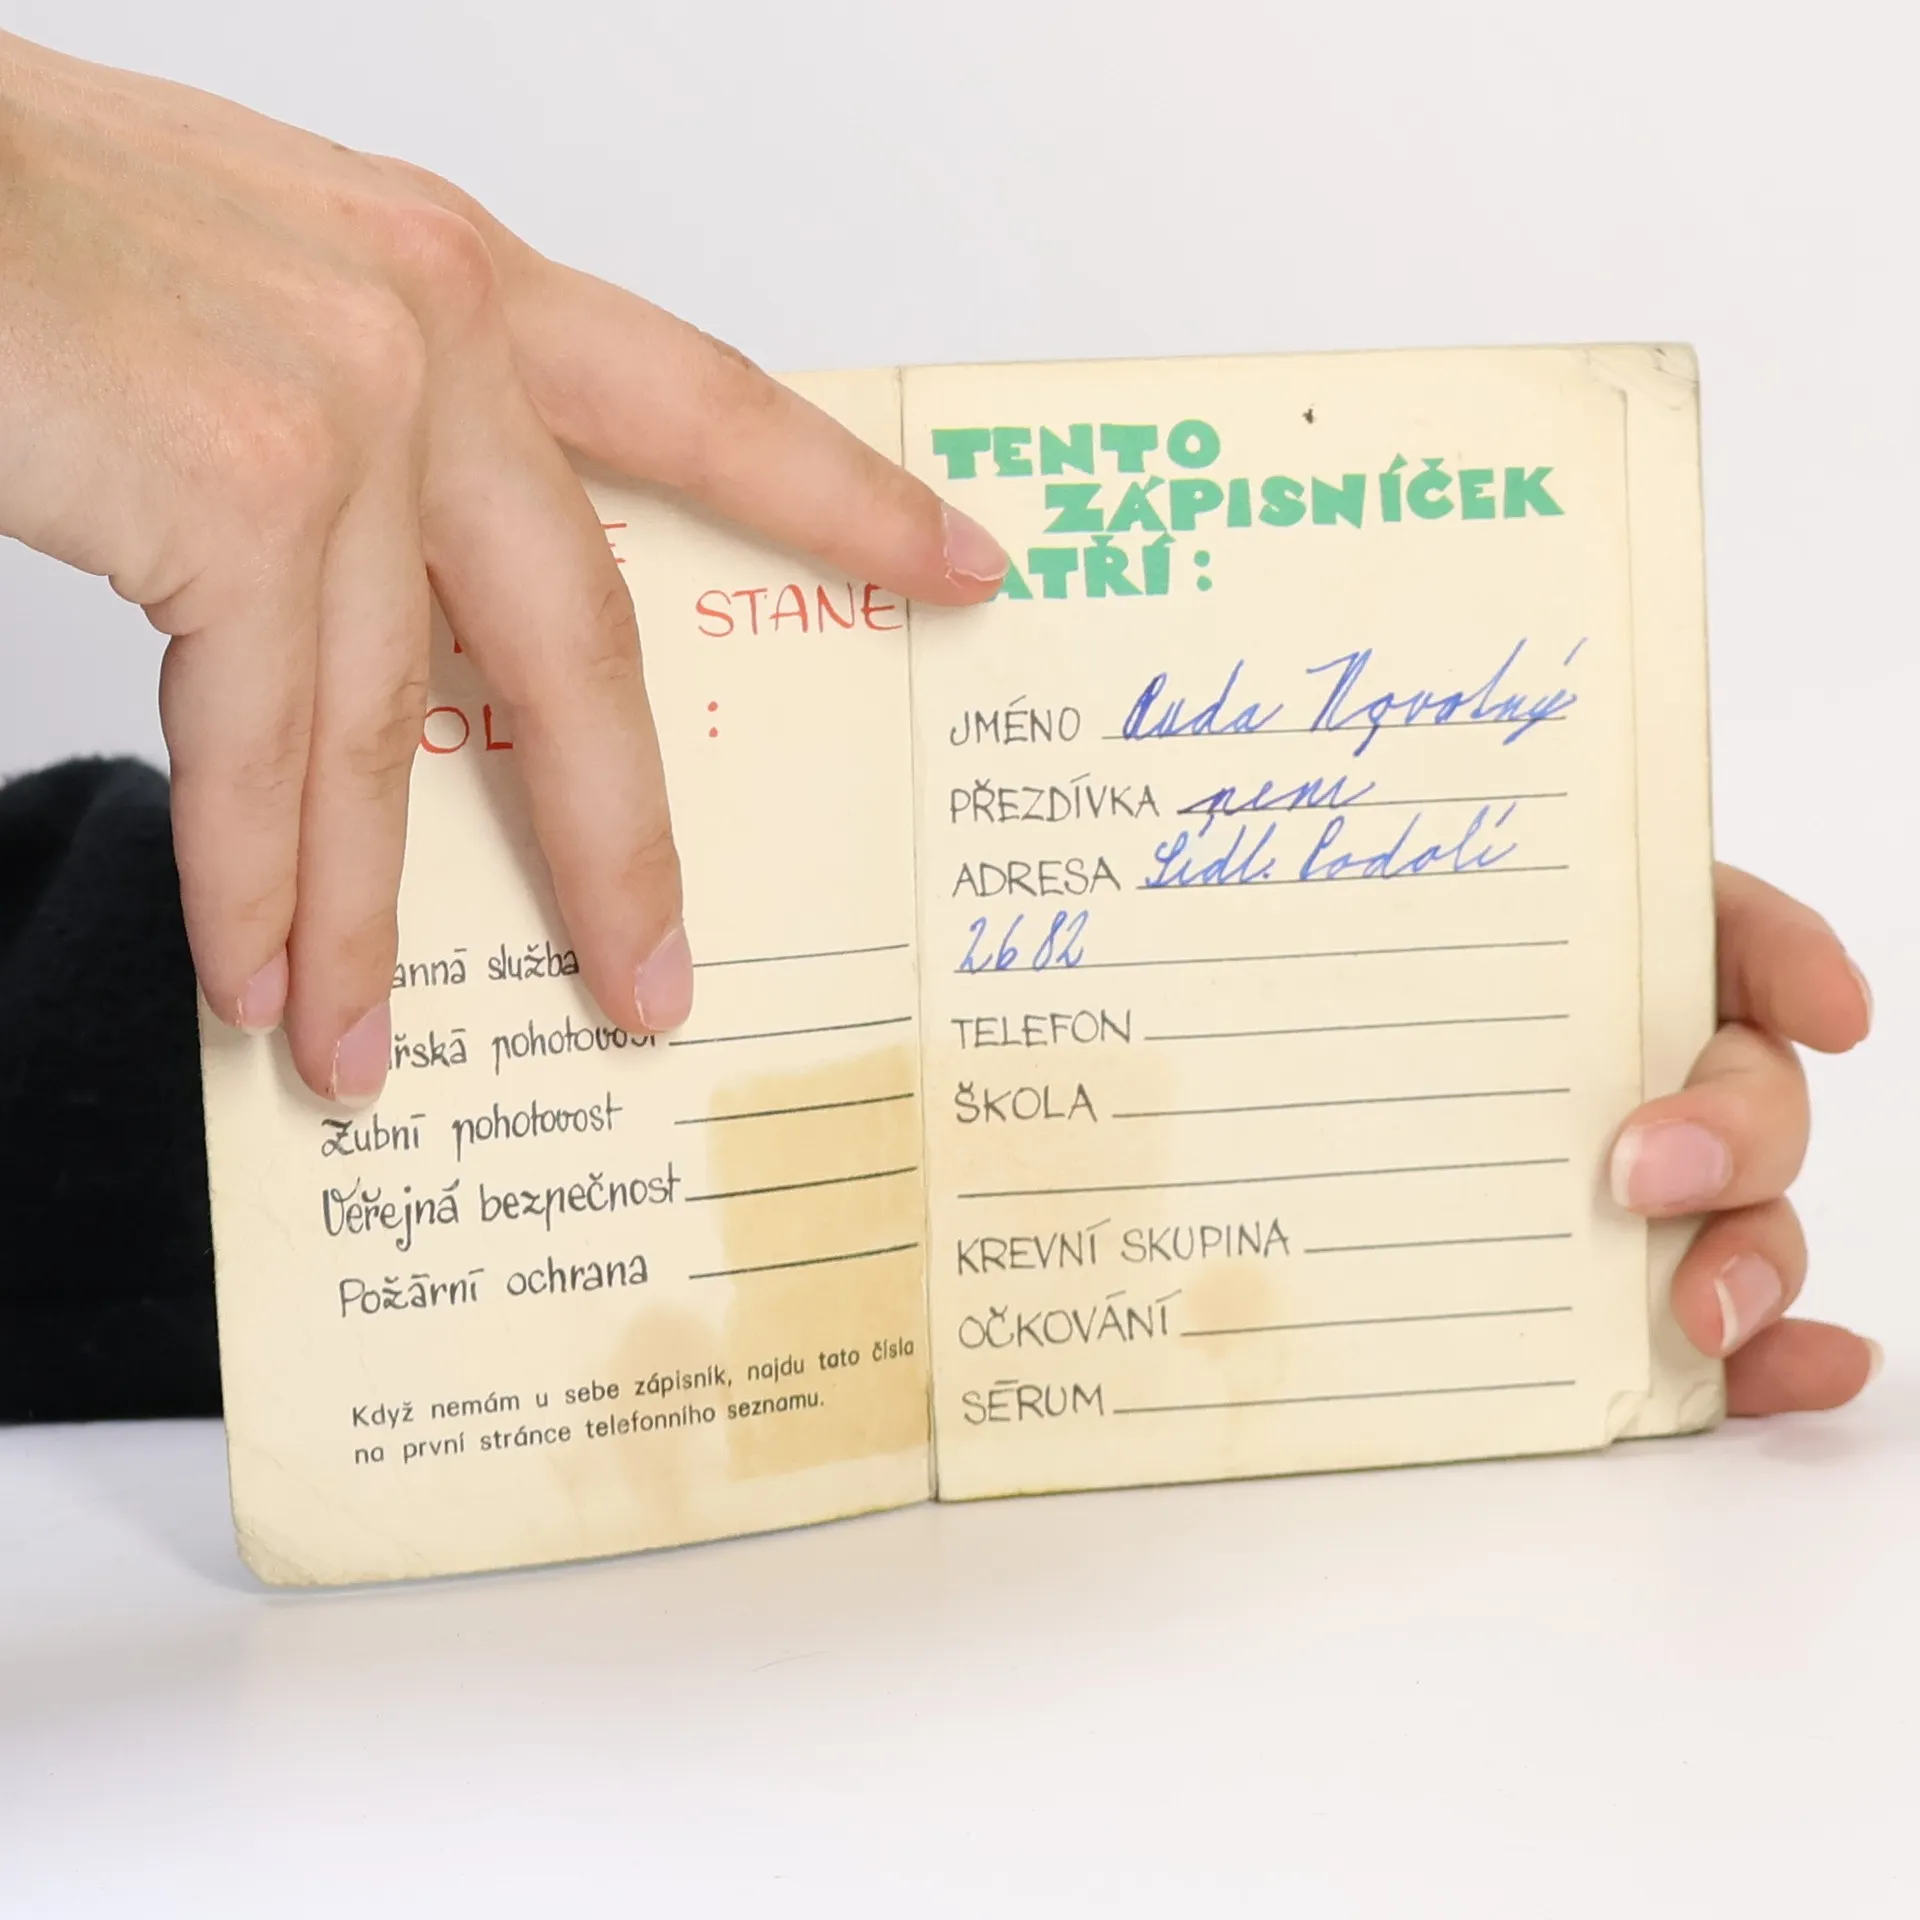 STANE
OL :
anná služba
řská pohotovost
Zubní pohotovost
Veřejná bezpečnost
Požární ochrana
Když nemám u sebe zápisník, najdu tato čísla
na první stránce telefonního seznamu.
TENTO
ZÁPISNÍČEK
ATŘÍ:
JMÉNO Ruda Novotný
PŘEZDÍVKA není
ADRESA Sídl. Podolí
2682
TELEFON
ŠKOLA
KREVNÍ SKUPINA
OČKOVÁNÍ
SÉRUM